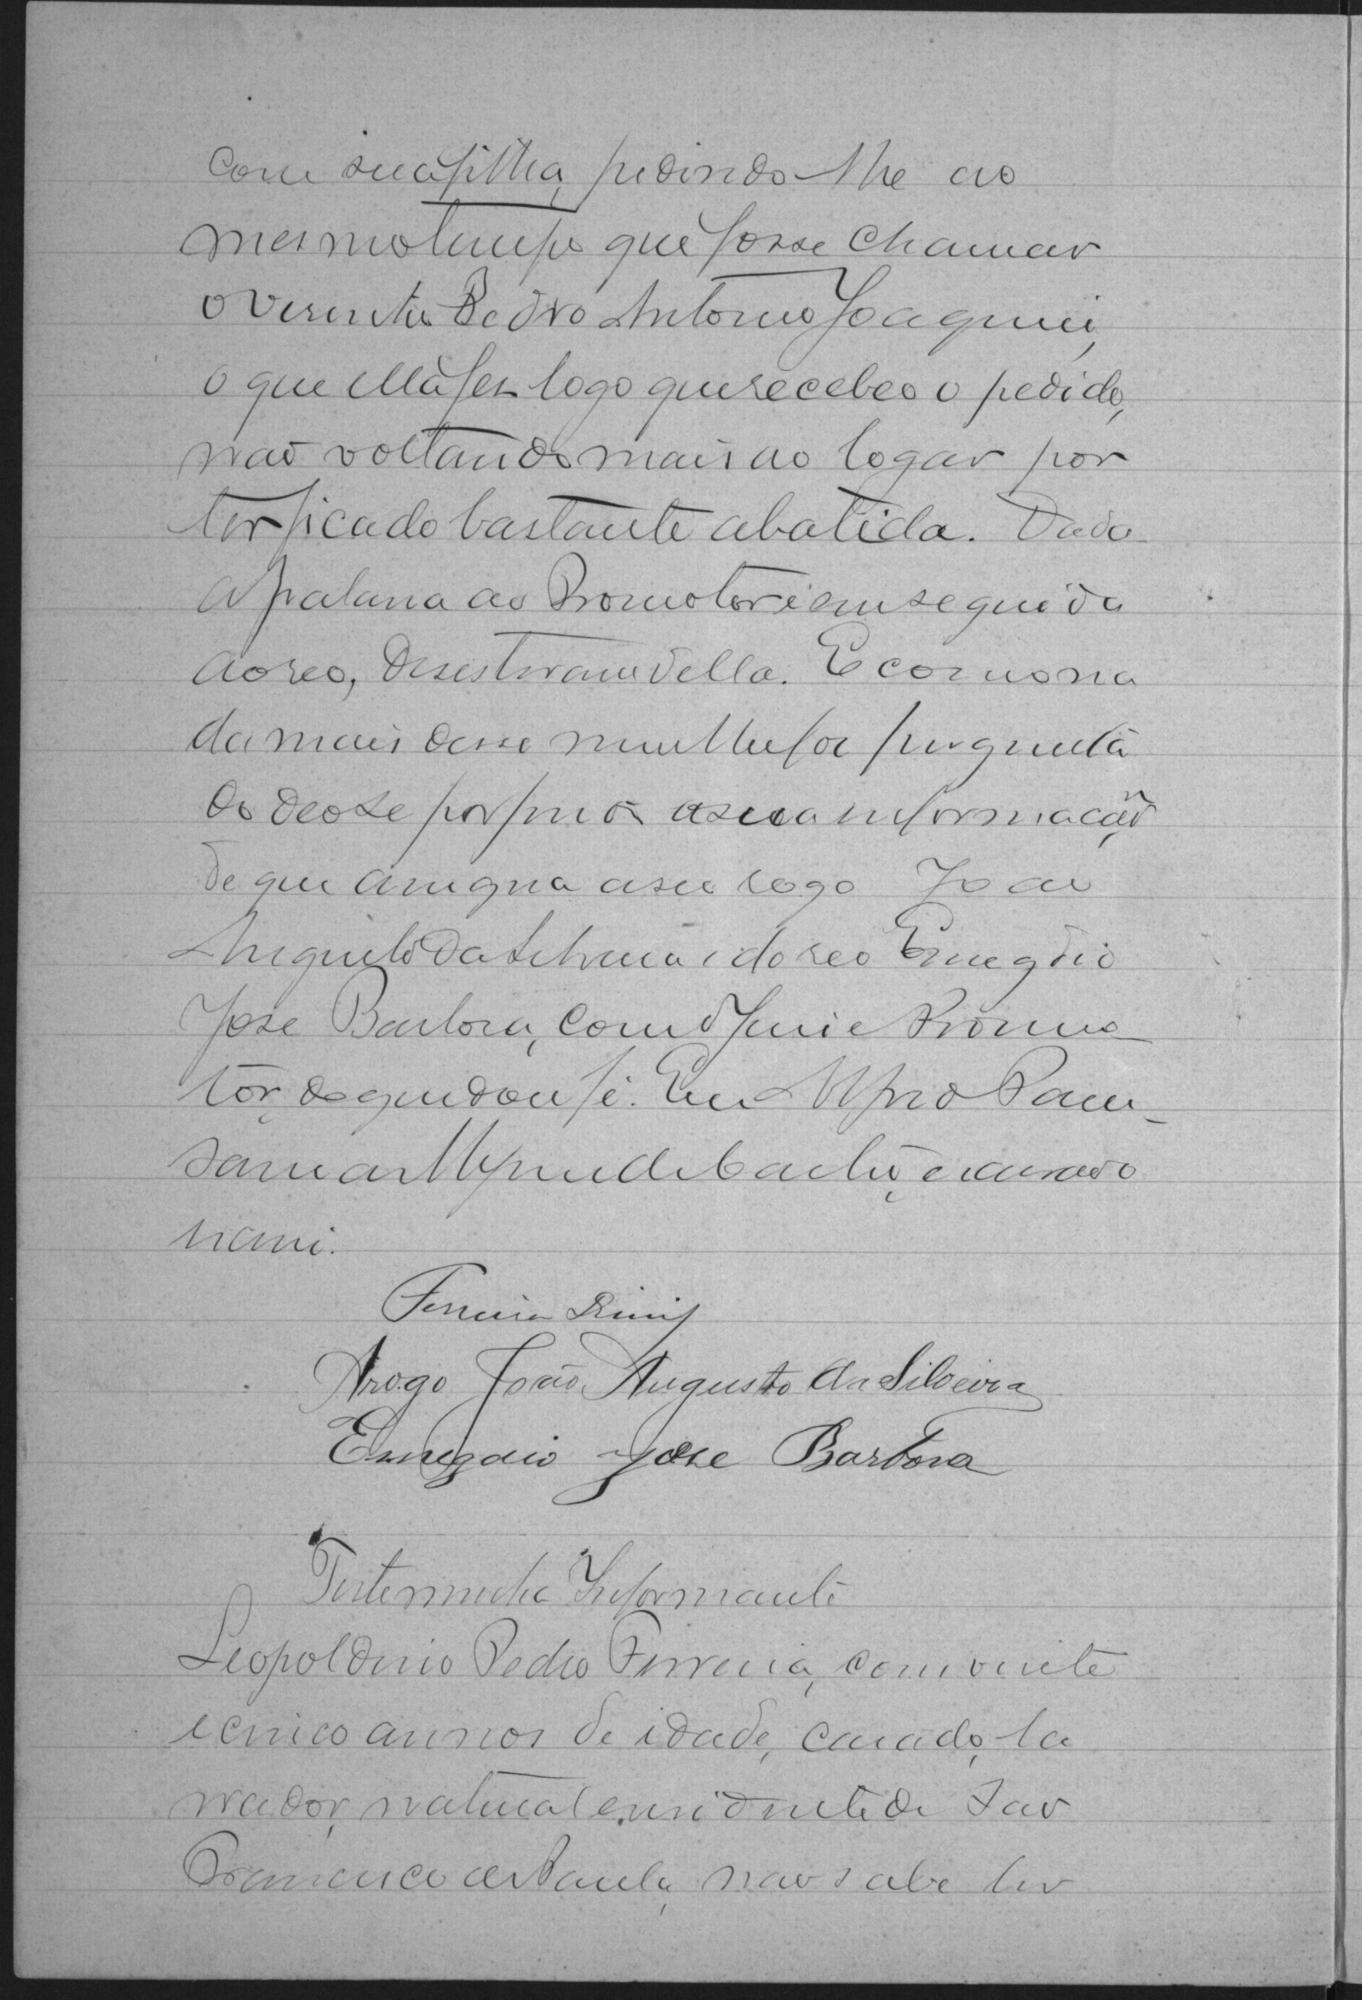 com sua filha, pedindo-lhe ao
mesmo tempo que fosse chamar
o visinho Pedro Antonio Joaquim,
o que ella fez logo que recebeo o pedido,
não voltando mais ao logar por
ter ficado bastante abatida. Dada
a palavra ao Promotor e em seguida
ao reo, desistiram della. E como na
da mais disse nem lhe foi pergunta
do deo-se por finda a sua informação
de que assigna a seu rogo João
Augusto da Silveira e do reo Emegdio
José Barbosa, com o Juiz e Promo-
tor, do que dou fé. Eu
escrivão
Ferreira Diniz
Arogo João Augusto da Silveira
Emegdio José Barbosa
Testemunha Informante
Leopoldino Pedro Ferreira, com vinte
e cinco annos de idade, casado, la
vrador, natural e residente de São
Francisco de Paula, não sabe ler